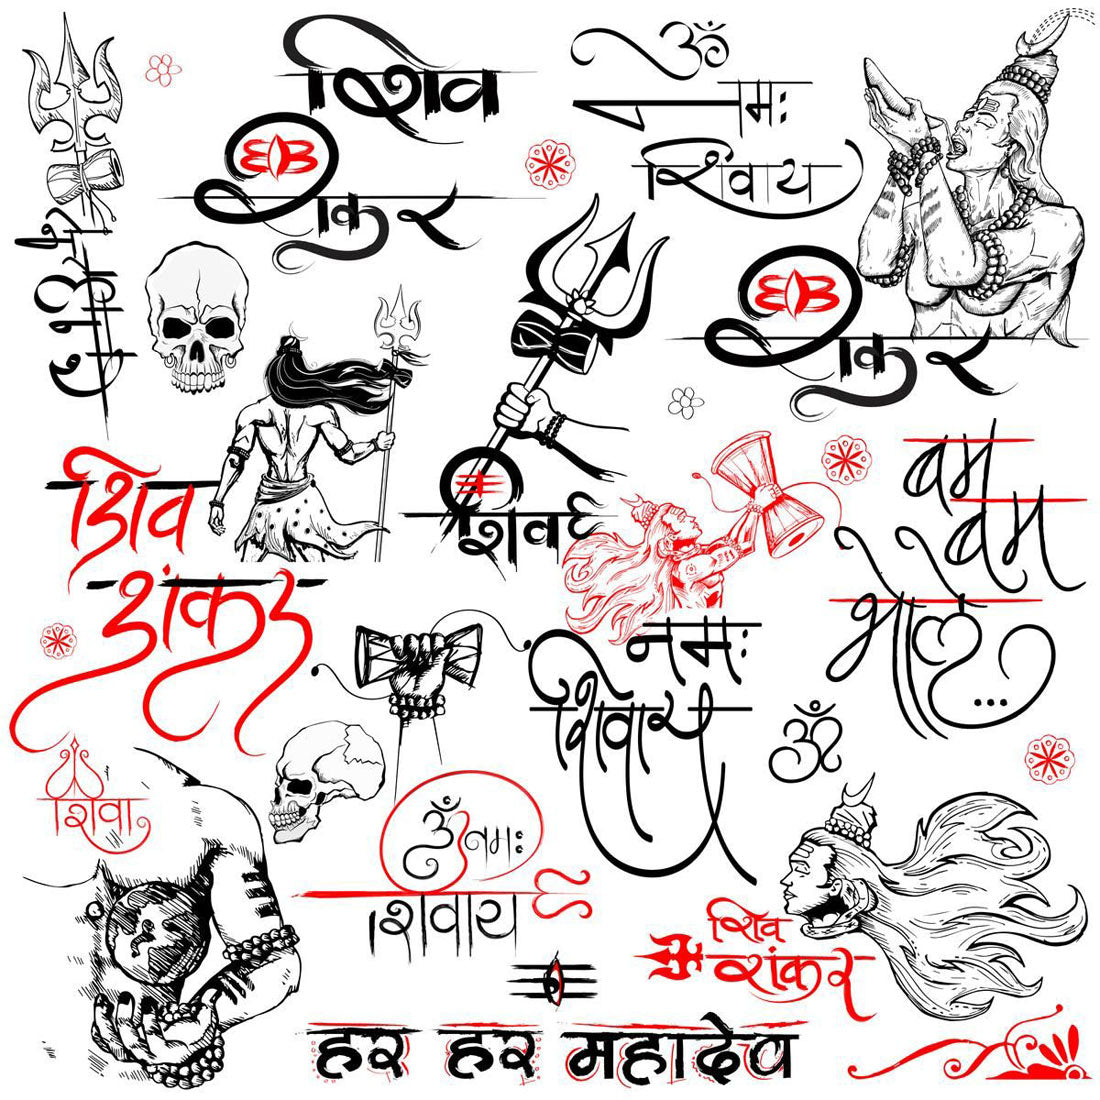 शिव
शंकर
ॐ
नमः
शिवाय
शंकर
शिव
शंकर
शिव
बम
बम
भोले...
नमः
शिवाय
ॐ
शिवा
ॐ नमः
शिवाय
शिव
शंकर
हर हर महादेव